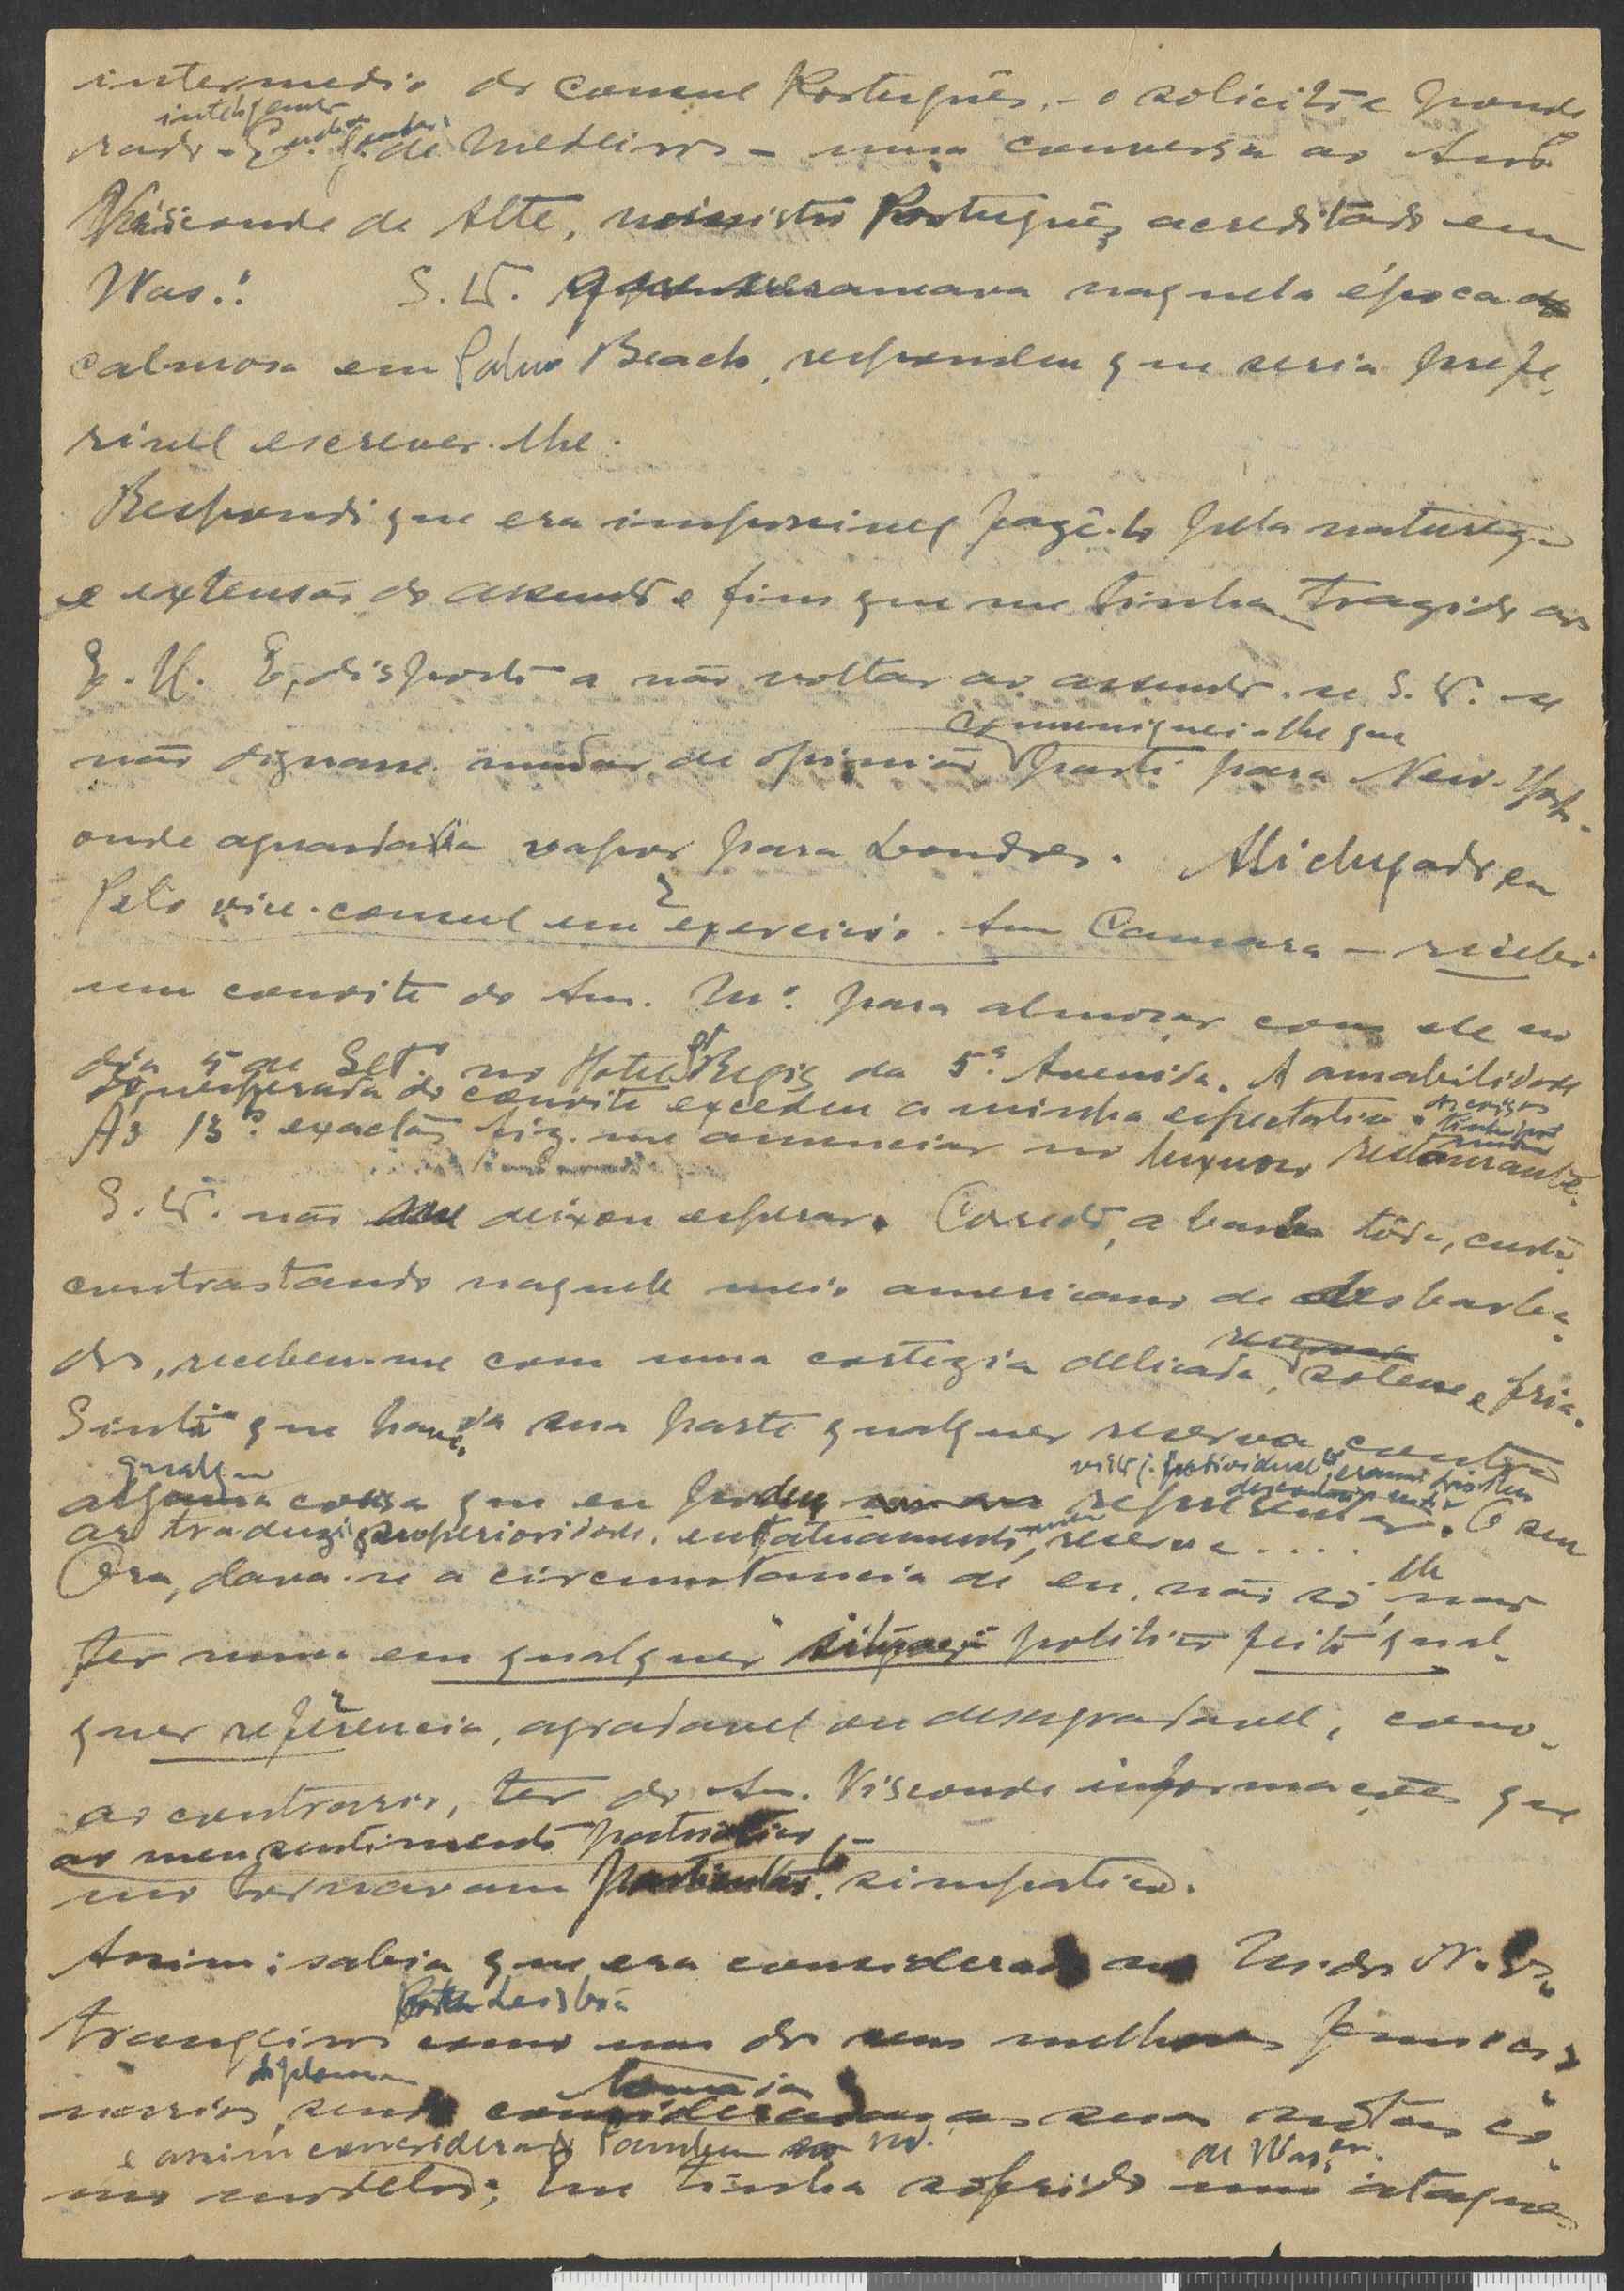 intermedio do consul Português, - o solicito e ponde
inteligente
rado - de Medeiros - uma conversa ao Snr.
Visconde de Alte, ministro Português acreditado em
Was.: S. Ex. naquela época
calmosa em Palm Beach, respondeu que seria prefe
rivel escrever-lhe.
Respondi que era impossivel fazê-lo pela natureza
e extensão do assunto e fim que me tinha trazido aos
E. U. E, disposto a não voltar ao assunto se S. Ex. se
comuniquei-lhe que
não dignasse mudar de opinião parti para New-York
onde aguardaria vapor para Londres. Ali chegado
Pelo vice-consul em exercicio - Snr Camara - recebi
um convite do Snr. M.º para almoçar com ele no
dia 5 de Set.º no Hotel St Regis da 5.ª Avenida. A amabilidade
inesperada do convite excedeu a minha espectativa.
Às 13 h. exactas fiz-me anunciar no luxuoso restaurante.
S. Ex. não me deixou esperar. Correcto, a barba tôda, curta,
contrastando naquele meio americano de desbarba
dos, recebeu-me com uma cortezia delicada, solene e fria.
Senti que havia da sua parte qualquer reserva contra
qualquer
alguma cousa que eu podia representar. O seu
ar traduzia superioridade, enfatuamento, reserva....
Ora, dava-se a circumstancia de eu, não só, não
ter nunca em qualquer situação politica feito qual-
quer referencia, agradavel ou desagradavel, como
ao contrario, ter do Snr. Visconde informações que
ao meu sentimento patriotico
mo tornavam simpatico.
Assim: sabia que era considerado no M. dos N. Es
Lisboa
trangeiros como um dos seus melhores funccio
diplomas
narios, sendo as suas notas co
e assim considerado tambem
mo modelos; que tinha sofrido ataques